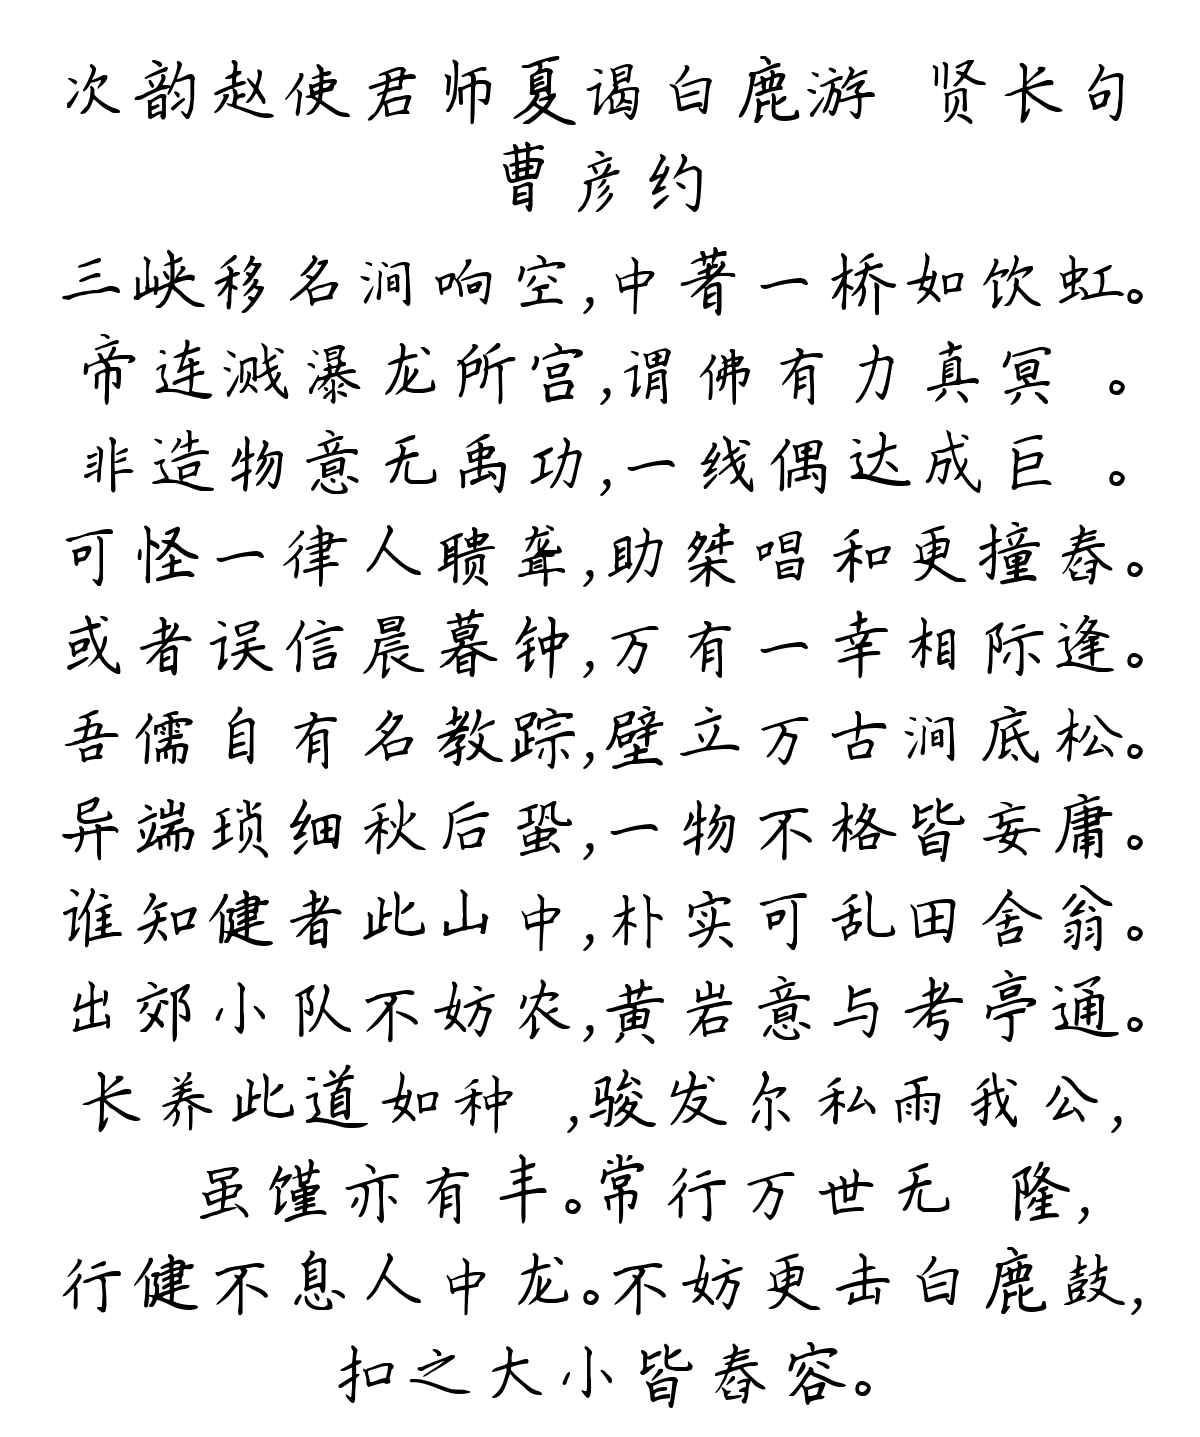 次韵赵使君师夏谒白鹿游 贤长句
曹彦约
三峡移名涧响空,中著一桥如饮虹。
帝连溅瀑龙所宫,谓佛有力真冥 。
非造物意无禹功,一线偶达成巨 。
可怪一律人聩聋,助桀唱和更撞舂。
或者误信晨暮钟,万有一幸相际逢。
吾儒自有名教踪,壁立万古涧底松。
异端琐细秋后蛩,一物不格皆妄庸。
谁知健者此山中,朴实可乱田舍翁。
出郊小队不妨农,黄岩意与考亭通。
长养此道如种 ,骏发尔私雨我公,
虽馑亦有丰。常行万世无 隆,
行健不息人中龙。不妨更击白鹿鼓,
扣之大小皆舂容。